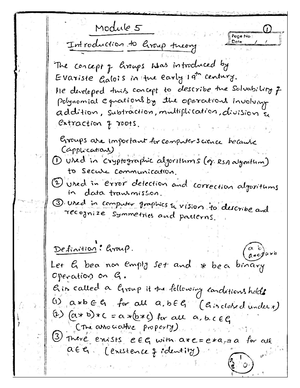 Module 5
①
Page No
Date / /
Introduction to Group theory
The concept of Groups was introduced by
Evariste Galois in the early 19th century.
He developed this concept to describe the Solvability of
Polynomial equations by the operations involving
addition, subtraction, multiplication, division &
extraction of roots.
Groups are important for computer science because
(applications)
① Used in cryptographic algorithms (eg. RSA algorithm)
to secure communication.
② Used in error detection and correction algorithms
in data transmisson.
③ Used in computer graphics & vision to describe and
recognize symmetries and patterns.
Definition: Group.
Let G be a non empty set and * be a binary
operation on G.
G is called a Group if the following conditions holds
(1) a*b ∈ G for all a, b ∈ G (G is closed under *)
(2) (a*b)*c = a*(b*c) for all a, b, c ∈ G
(The associative property)
③ There exists e ∈ G with a*e=e*a=a for all
a ∈ G (existence of identity)